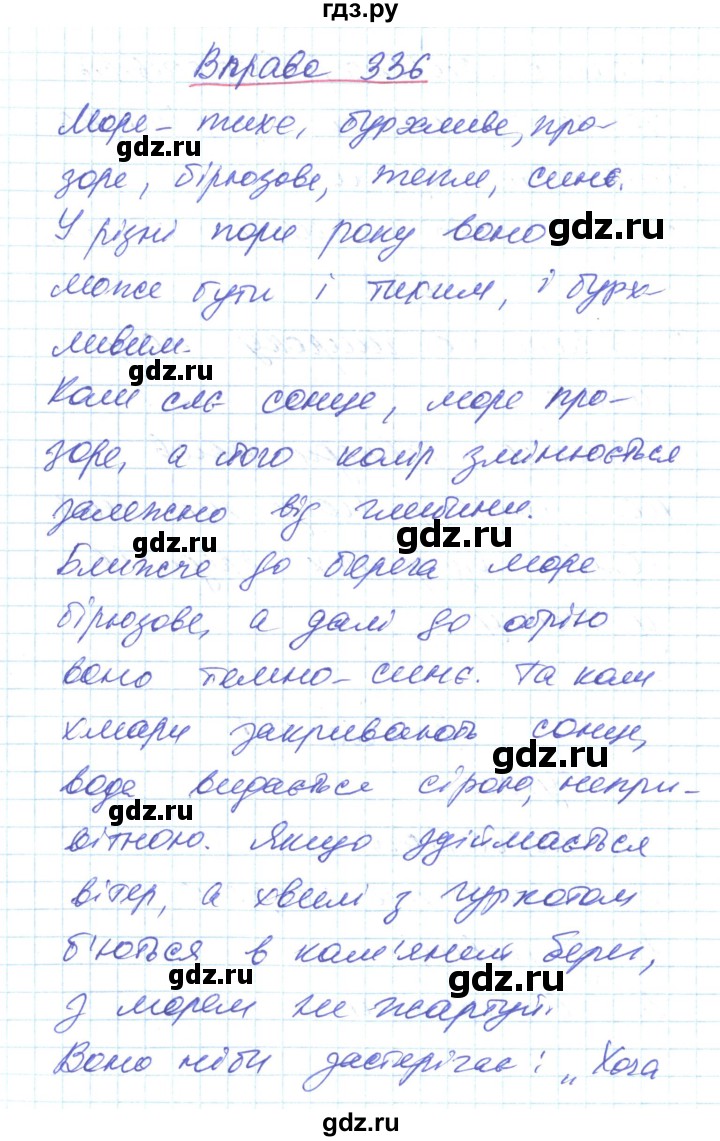 гдз.ру
Вправа 336
Море – тихе, бурхливе, про-
зоре, бірюзове, тепле, синє.
У різні пори року воно
може бути і тихим, і бурх-
ливим.
Коли сяє сонце, море про-
зоре, а його колір змінюється
залежно від глибини.
Ближче до берега море
бірюзове, а далі до обрію
воно темно-синє. Та коли
хмари закривають сонце,
вода видається сірою, непри-
вітною. Якщо здіймається
вітер, а хвилі з гуркотом
б'ються в кам'яний берег,
з морем не жартуй.
Воно ніби застерігає: „Хоча
gdz.ru
gdz.ru
gdz.ru
gdz.ru
gdz.ru
gdz.ru
gdz.ru
gdz.ru
gdz.ru
gdz.ru
gdz.ru
gdz.ru